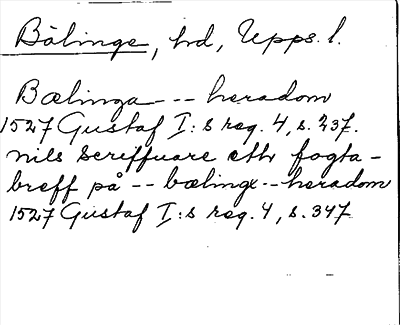 Bälinge, hd, Upps. l.
Bælinga --- heradom
1527 Gustaf I:s reg. 4, s. 237.
nils scriffuare eth fogta-
breff på -- bælinge -- heradom
1527 Gustaf I:s reg. 4, s. 347